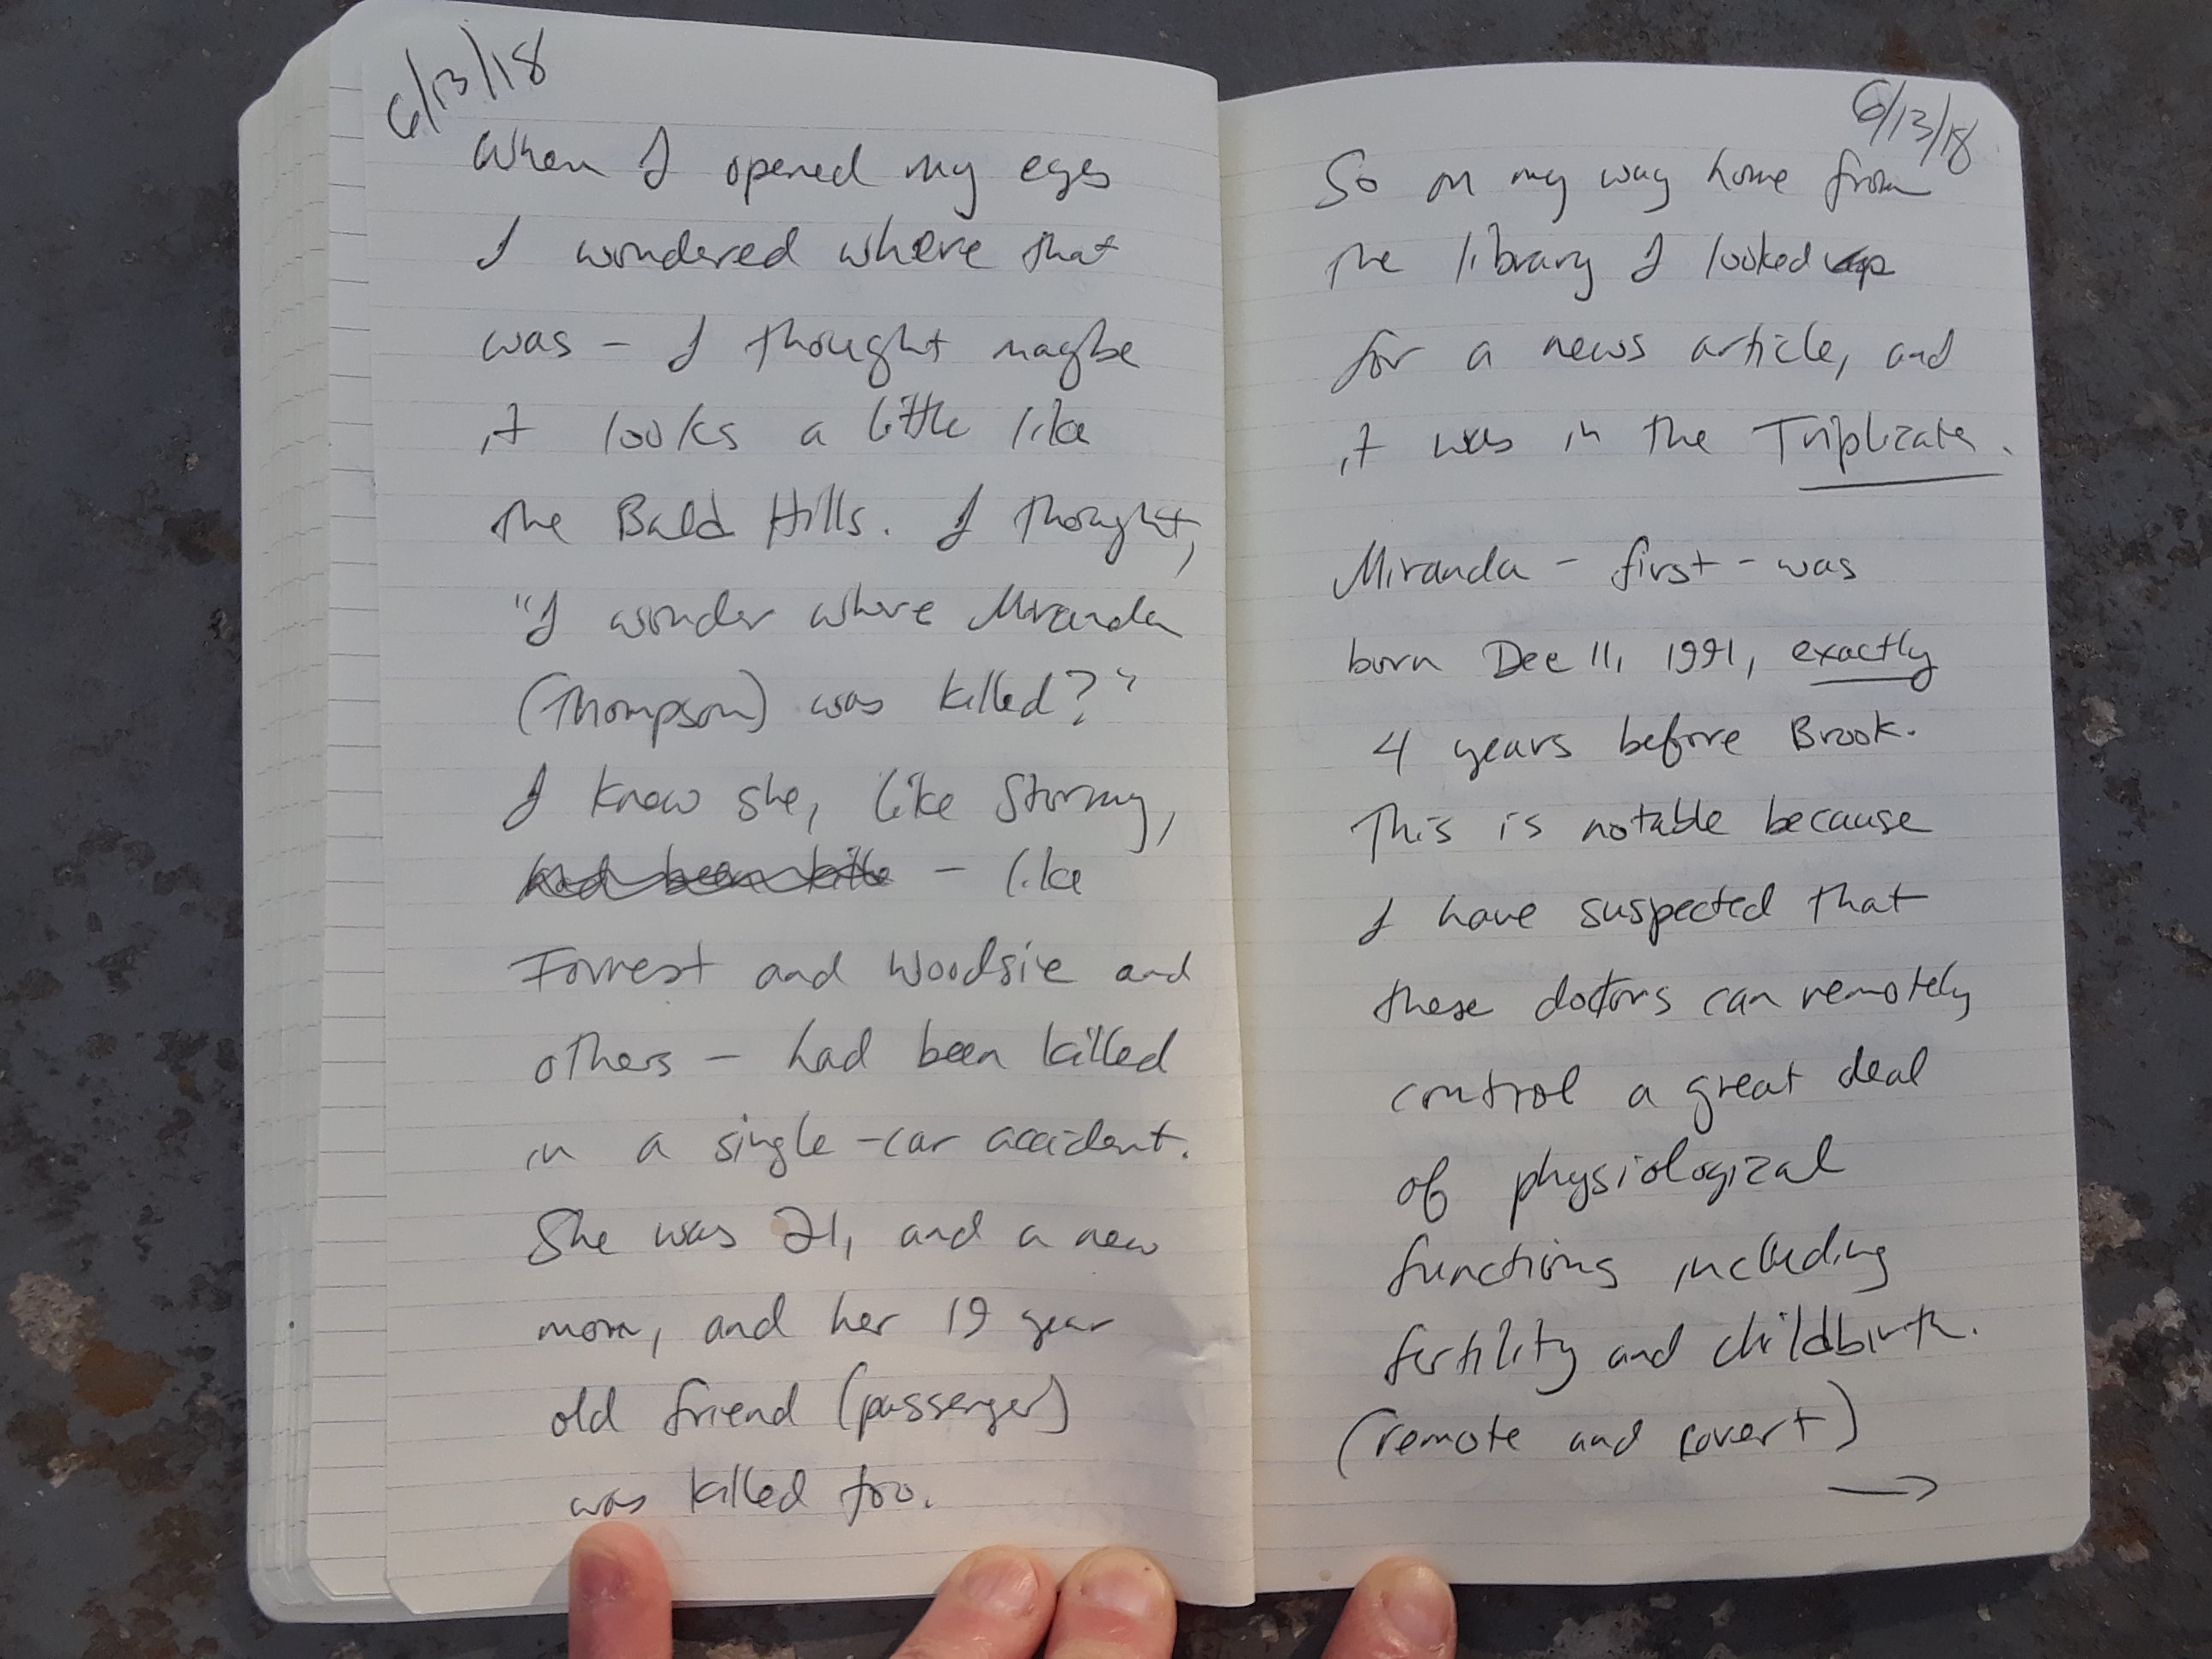 6/13/18
When I opened my eyes
I wondered where that
was – I thought maybe
it looks a little like
the Bald Hills. I thought,
"I wonder where Miranda
(Thompson) was killed?"
I knew she, like Stormy,
had been kille – like
Forrest and Woodsie and
others – had been killed
in a single-car accident.
She was 21, and a new
mom, and her 19 year
old friend (passenger)
was killed too.
6/13/18
So on my way home from
the library I looked up
for a news article, and
it was in the Triplicate.
Miranda – first – was
born Dec 11, 1991, exactly
4 years before Brook.
This is notable because
I have suspected that
these doctors can remotely
control a great deal
of physiological
functions including
fertility and childbirth.
(remote and covert)
→